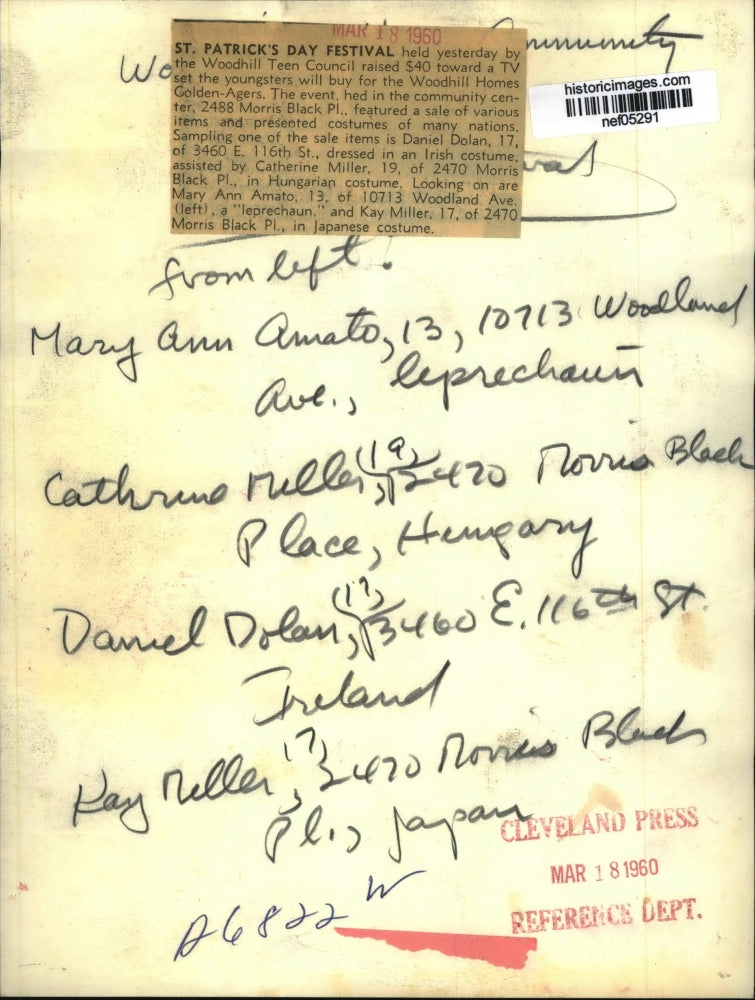 MAR 18 1960
Community
Wo
ST. PATRICK'S DAY FESTIVAL held yesterday by
the Woodhill Teen Council raised $40 toward a TV
set the youngsters will buy for the Woodhill Homes
Golden-Agers. The event, hed in the community cen-
ter, 2488 Morris Black Pl., featured a sale of various
items and presented costumes of many nations.
Sampling one of the sale items is Daniel Dolan, 17,
of 3460 E. 116th St., dressed in an Irish costume,
assisted by Catherine Miller, 19, of 2470 Morris
Black Pl., in Hungarian costume. Looking on are
Mary Ann Amato, 13, of 10713 Woodland Ave.
(left), a "leprechaun," and Kay Miller, 17, of 2470
Morris Black Pl., in Japanese costume.
historicimages.com
nef05291
val
from left.
Mary Ann Amato, 13, 10713 Woodland
Ave., leprechaun
Cathrine Miller, (19) 2470 Morris Black
Place, Hungary
Daniel Dolan, (17) 3460 E. 116th St.
Ireland
Kay Miller, 17, 2470 Morris Black
Pl., Japan
CLEVELAND PRESS
MAR 18 1960
REFERENCE DEPT.
A6822 W